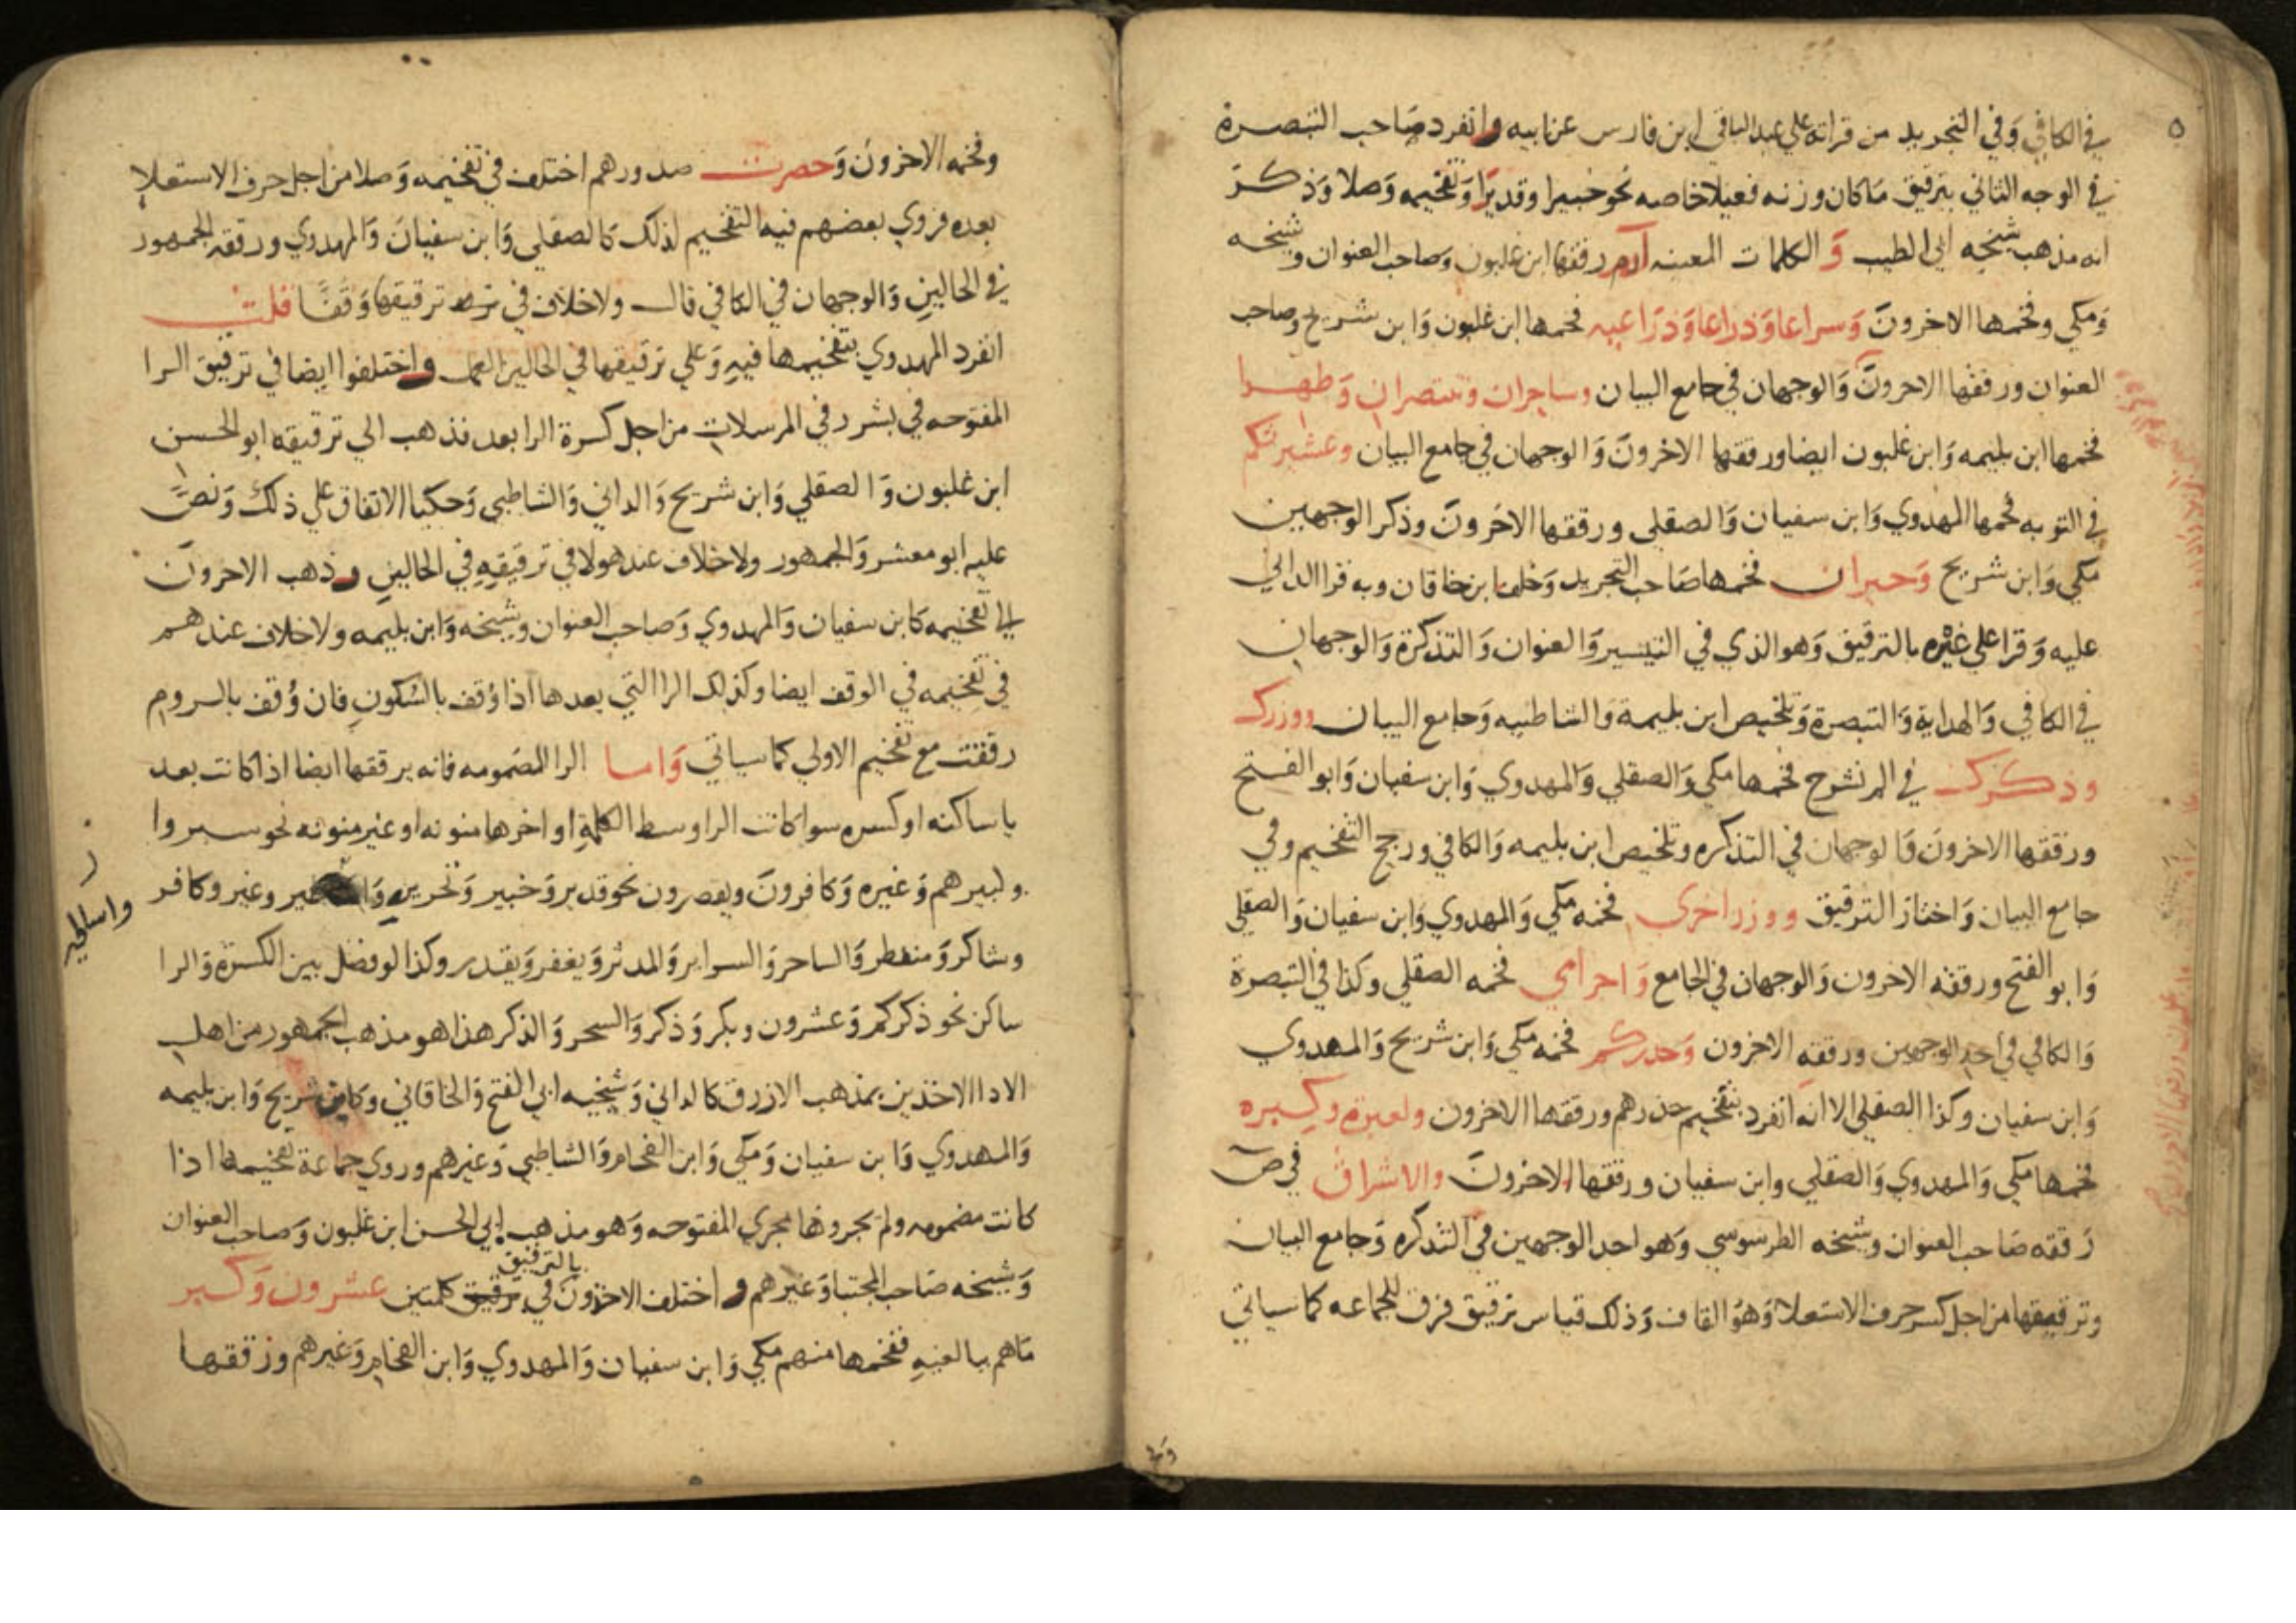 في الكافي وَفي التجريد من قراته علي عبد الباقي ابن فارس عن ابيه وانفرد صَاحب التبصرة
في الوجه الثاني بترقيق مَا كان وزنه فعيلا خاصه نحو خبيرا وقديرًا وَتفخيمه وَصلا وَذكرَ
انه مذهب شيخه ابي الطيب وَ الكلمات المعينه ارم رققها ابن غلبون وَصاحب العنوان وشيخه
وَمكي وفخمها الاخرونَ وَسراعا وَذراعا وَذرَاعيه فخمها ابن غلبون وَابن شريح وصاحب
العنوان ورققها الاخرونَ وَالوجهان في جامع البيان وساحران وتنتصران وَطهرا
فخمها ابن بليمه وَابن غلبون ايضا ورققها الاخرونَ وَالوجهان في جامع البيان وعشيرتكم
في التوبه فخمها المهدوي وَابن سفيان وَالصقلي ورققها الاخرونَ وذكر الوجهين
مكي وَابن شريح وَحيران فخمها صَاحب التجريد وَخلف ابن خاقان وبه قرا الداني
عليه وَقرا علي غيره بالترقيق وَهو الذي في التيسير وَالعنوان وَالتذكرة وَالوجهان
في الكافي وَالهداية وَالتبصرة وَتلخيص ابن بليمة وَالشاطبيه وَجامع البيان ووزرك
وذكرك في الم نشرح فخمها مكي وَالصقلي وَالمهدوي وَابن سفيان وَابو الفتح
ورققها الاخرونَ وَالوجهان في التذكره وتلخيص ابن بليمه وَالكافي ورجح التفخيم وفي
جامع البيان وَاختار الترقيق ووزر اخري فخمه مكي وَالمهدوي وَابن سفيان وَالصقلي
وَابو الفتح ورققه الاخرون وَالوجهان في الجامع وَاجرامي فخمه الصقلي وكذا في التبصرة
وَالكافي في احد الوجهين ورققه الاخرون وَحذركم فخمه مكي وَابن شريح وَالمهدوي
وَابن سفيان وكذا الصقلي الا انه انفرد بتفخيم حذرهم ورققها الاخرون ولعبرة وكبره
فخمها مكي وَالمهدوي وَالصقلي وابن سفيان ورققها الاخرونَ والاشراق في ص
رَققه صَاحب العنوان وشيخه الطرسوسي وَهو احد الوجهين في التذكره وَجامع البيان
وترقيقها من اجل كسر حرف الاستعلا وَهوَ القاف وَذلك قياس ترقيق فرق للجماعه كما سياتي
وفخمه الاخرونَ وَحصرت صدورهم اختلف في تفخيمه وَصلا من اجل حرف الاستعلا
بعده فروي بعضهم فيه التفخيم لذلك كالصقلي وَابن سفيانَ وَالمهدوي ورققه الجمهور
في الحالين وَالوجهان في الكافي قال ولا خلاف في ترقيقها وَقفًا قلت
انفرد المهدوي بتفخيمها فيه وَعلي ترقيقها في الحالين العمل واختلفوا ايضا في ترقيق الرا
المفتوحه في بشرر في المرسلات من اجل كسرة الرا بعد فذهب الي ترقيقه ابو الحسن
ابن غلبون وَالصقلي وَابن شريح وَالداني وَالشاطبي وَحكيا الاتفاق علي ذلك وَنصّ
عليه ابو معشر وَالجمهور ولا خلاف عند هولا في ترقيقهِ في الحالين وذهب الاخرونَ
الي تفخيمه كابن سفيان وَالمهدوي وَصاحب العنوان وشيخه وَابن بليمه ولا خلاف عندهم
في تفخيمه في الوقف ايضا وكذلك الرا التي بعدها اذا وُقف بالسُكون فان وُقف بالروم
رققت مع تفخيم الاولي كما سياتي وَاما الرا المضمومه فانه يرققها ايضا اذا كانت بعد
يا ساكنه او كسره سوا كانت الرا وسط الكلمة او اخرها منونه او غير منونه نحو سيروا
وكبيرهم وَغيره وَكافرونَ ويعصرون نحو قدير وَخبير وَتحرير وغير وكافر
واما الخير
وشاكر وَمنفطر وَالساحر وَالسراير وَالمدثر وَيغفر وَيقدر وكذا لو فصل بين الكسرة وَالرا
ساكن نحو ذكركم وَعشرون وبكر وَذكر وَالسحر وَالذكر هذا هو مذهب الجمهور من اهل
الادا الاخذين بمذهب الازرق كالداني وَشيخيه ابي الفتح وَالخاقاني وكابن شريح وَابن بليمه
وَالمهدوي وَابن سفيان وَمكي وَابن الفحام وَالشاطبي وَغيرهم وروي جماعة تفخيمها اذا
كانت مضمومه ولم يجروها مجري المفتوحه وَهو مذهب ابي الحسن ابن غلبون وَصاحب العنوان
وَشيخه صَاحب المجتبا وَغيرهم واختلف الاخرونَ في ترقيق كلمتين عشرون وَكبر
بالترقيق
مَاهم ببالغيه ففخمها منهم مكي وَابن سفيان وَالمهدوي وَابن الفحام وَغيرهم ورققها